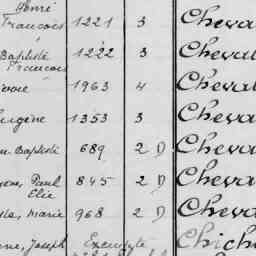 Henri
François 1221 3 Cheval
Baptiste 1222 3 Cheval
François
1963 4 Cheval
Eugène 1353 3 Cheval
Baptiste 689 2 D Cheval
Paul 845 2 D Cheval
Elie
Marie 968 2 D Cheva
Joseph Exempte Chich